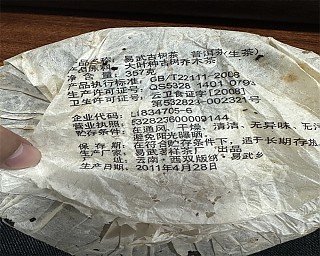 产品名称：易武古树茶 普洱茶(生茶)
产品原料：大叶种古树乔木茶
净含量：357克
产品执行标准：GB/T22111-2008
生产许可证号：QS5328 1401 0793
卫生许可证号：云卫食证字[2008]
第532823-002321号
企业代码：L1834705-6
营业执照：532823600009144
贮存条件：在通风、干燥、清洁、无异味、无污
避免阳光曝晒。
保存期：在符合贮存条件下，适于长期存
生产厂家：易武著祥茶厂 出品
地址：云南·西双版纳·易武乡
生产日期：2011年4月28日